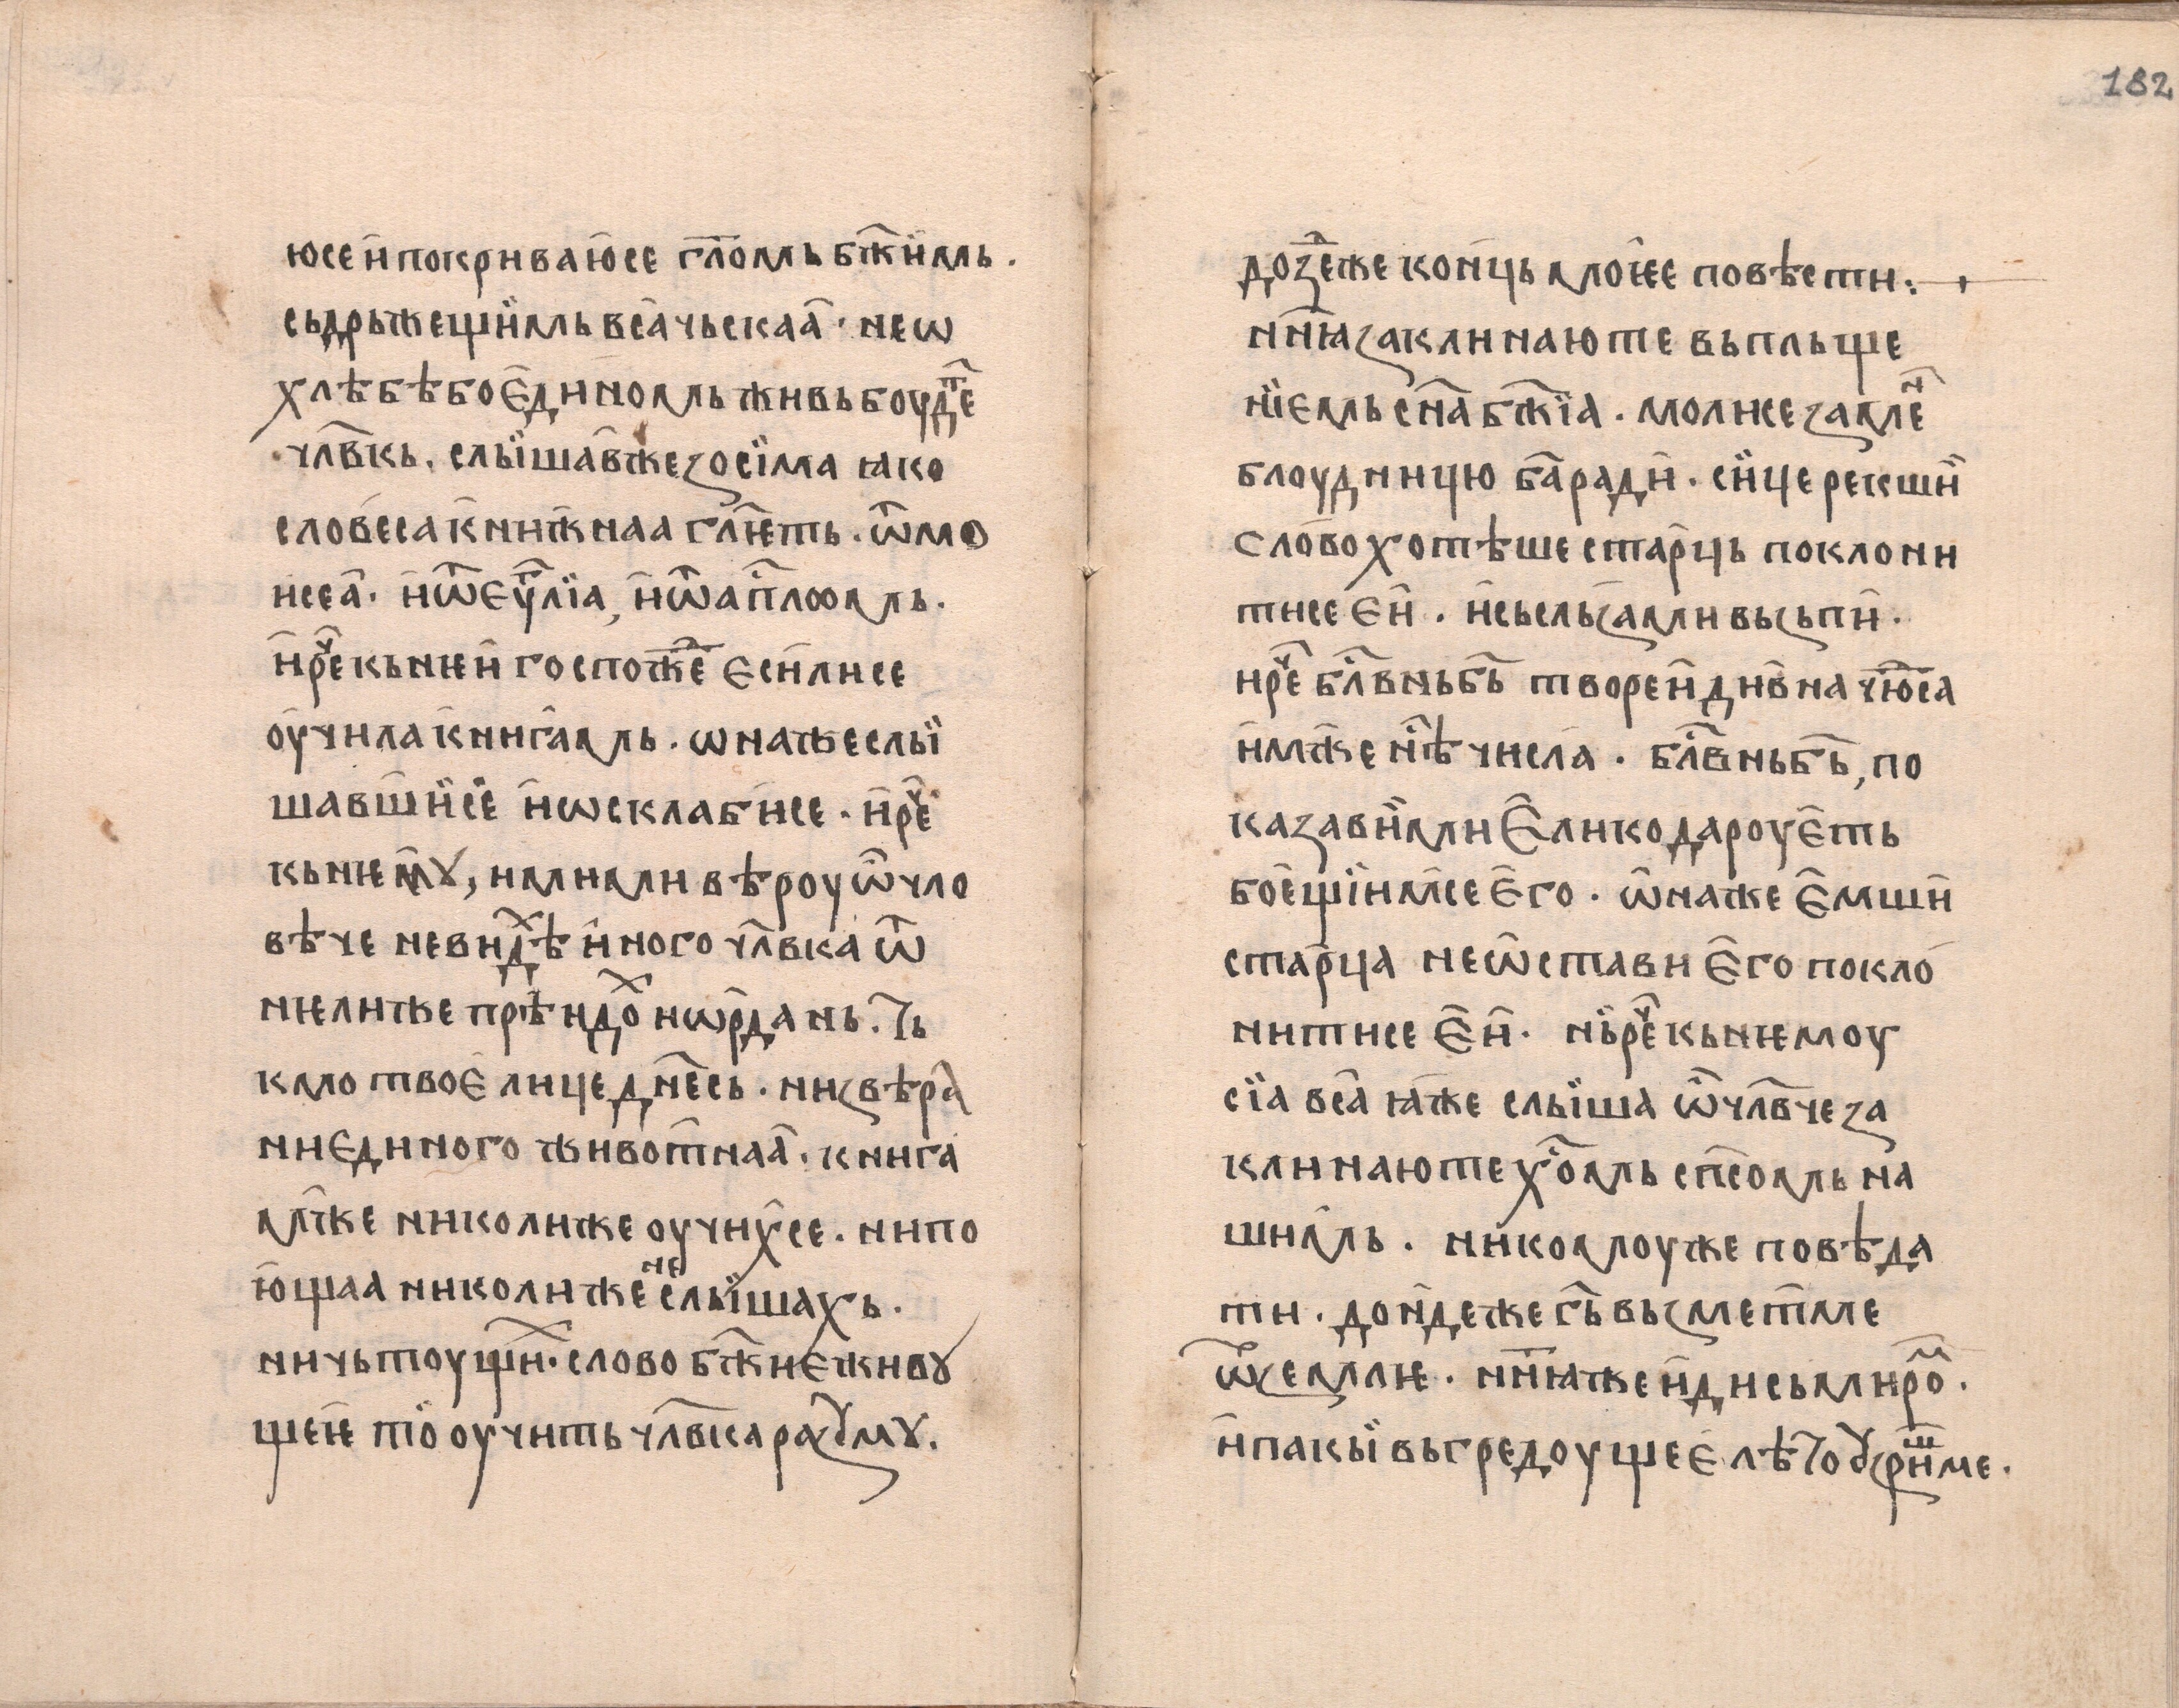 юсе и҆покриваю҆се гл҃омь бж҃їимь.
съдрьжещїимь всачьскаа҆. не ѡ
хлѣбѣ бо є҆диномь живь боуде​ⷮ
чл҃вкь. слӹшавже зосїма ꙗко
словеса книжнаа гл҃ѥть. ѿ мо
исеа҆. и҆ ѿ єѵⷢ҇лїа, и҆ ѿ а҆пⷭ҇лѡмь.
и҆ реⷱ҇ кь нѥи госпожⷣе є҆си ли се
оу҆чила книгамь. ѡна же слӹ
шавшїи се и҆ ѡсклаби се. и҆ реⷱ҇
кь нѥмꙋ, ими ми вѣроу ѿ чло
вѣче не видѣⷯ и҆ного чл҃вка ѿ
нѥлиже прѣидоⷯ иѡрдань. тъ
кмо твоѥ лице дн҃есь. ни ѕвѣра
ни єдиного животнаа҆. книга
мже николиже оучих се. ни по
ю҆щаа николиже не слӹшахь.
ни чьтоущиⷯ. слово бж҃иѥ живꙋ
щеѥ тїо оучить чл҃вка разꙋмꙋ.
182
дозⷣеже коньць моѥе повѣсти.
нн҃ꙗ заклинаю те вьпльще
нїємь сн҃а бж҃їа. моли се за меⷩ
блоудницю ба҃ ради. си҆це рекшїи
слово хотѣше старць поклони
ти се є҆и. и҆ сь сльзами вьзьпи.
и реⷱ҇ бл҃вньбь творе и҆ дивна чюⷣса
и҆мже нⷭ҇ѣ числа. бл҃вньбь, по
казавїи ми Є҆лико дароуѥть
боѥщїимсе є҆го. ѡ҆на же є҆мши
старца не ѡстави є҆го покло
нити се є҆и. нь реⷱ҇ кь нѥмоу
сїа вса ꙗже слӹша ѿ чл҃вче за
клинаю те хⷭ҇омь сп҃сомь на
шимь. никомоуже повѣда
ти. дон҆деже гь҃ вьзмет ме
ѿ земліе. нн҃ꙗ же и҆ди сь мироⷨ.
и҆ пакӹ вь гредоущеє лѣто ꙋзриⷲ҇ ме.